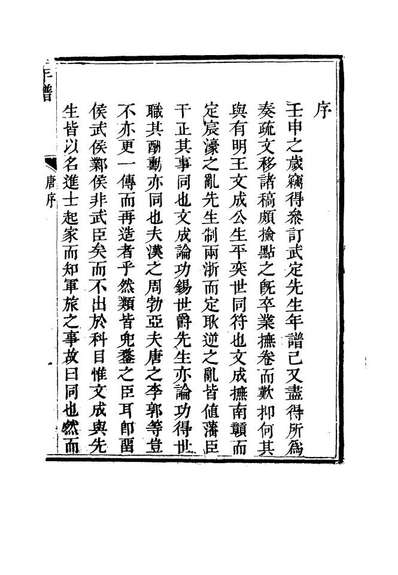 序
壬申之歲竊得叅訂武定先生年譜已又盡得所爲
奏疏文移諸稿頗撿點之旣卒業撫卷而歎抑何其
與有明王文成公生平奕世同符也文成撫南贑而
定宸濠之亂先生制兩浙而定耿逆之亂皆値藩臣
干正其事同也文成論功錫世爵先生亦論功得世
職其酧勳亦同也夫漢之周勃亞夫唐之李郭等豈
不亦更一傳而再造者乎然類皆兜鍪之臣耳卽留
侯武侯鄴侯非武臣矣而不出於科目惟文成與先
生皆以名進士起家而知軍旅之事故曰同也然而
年譜
唐序